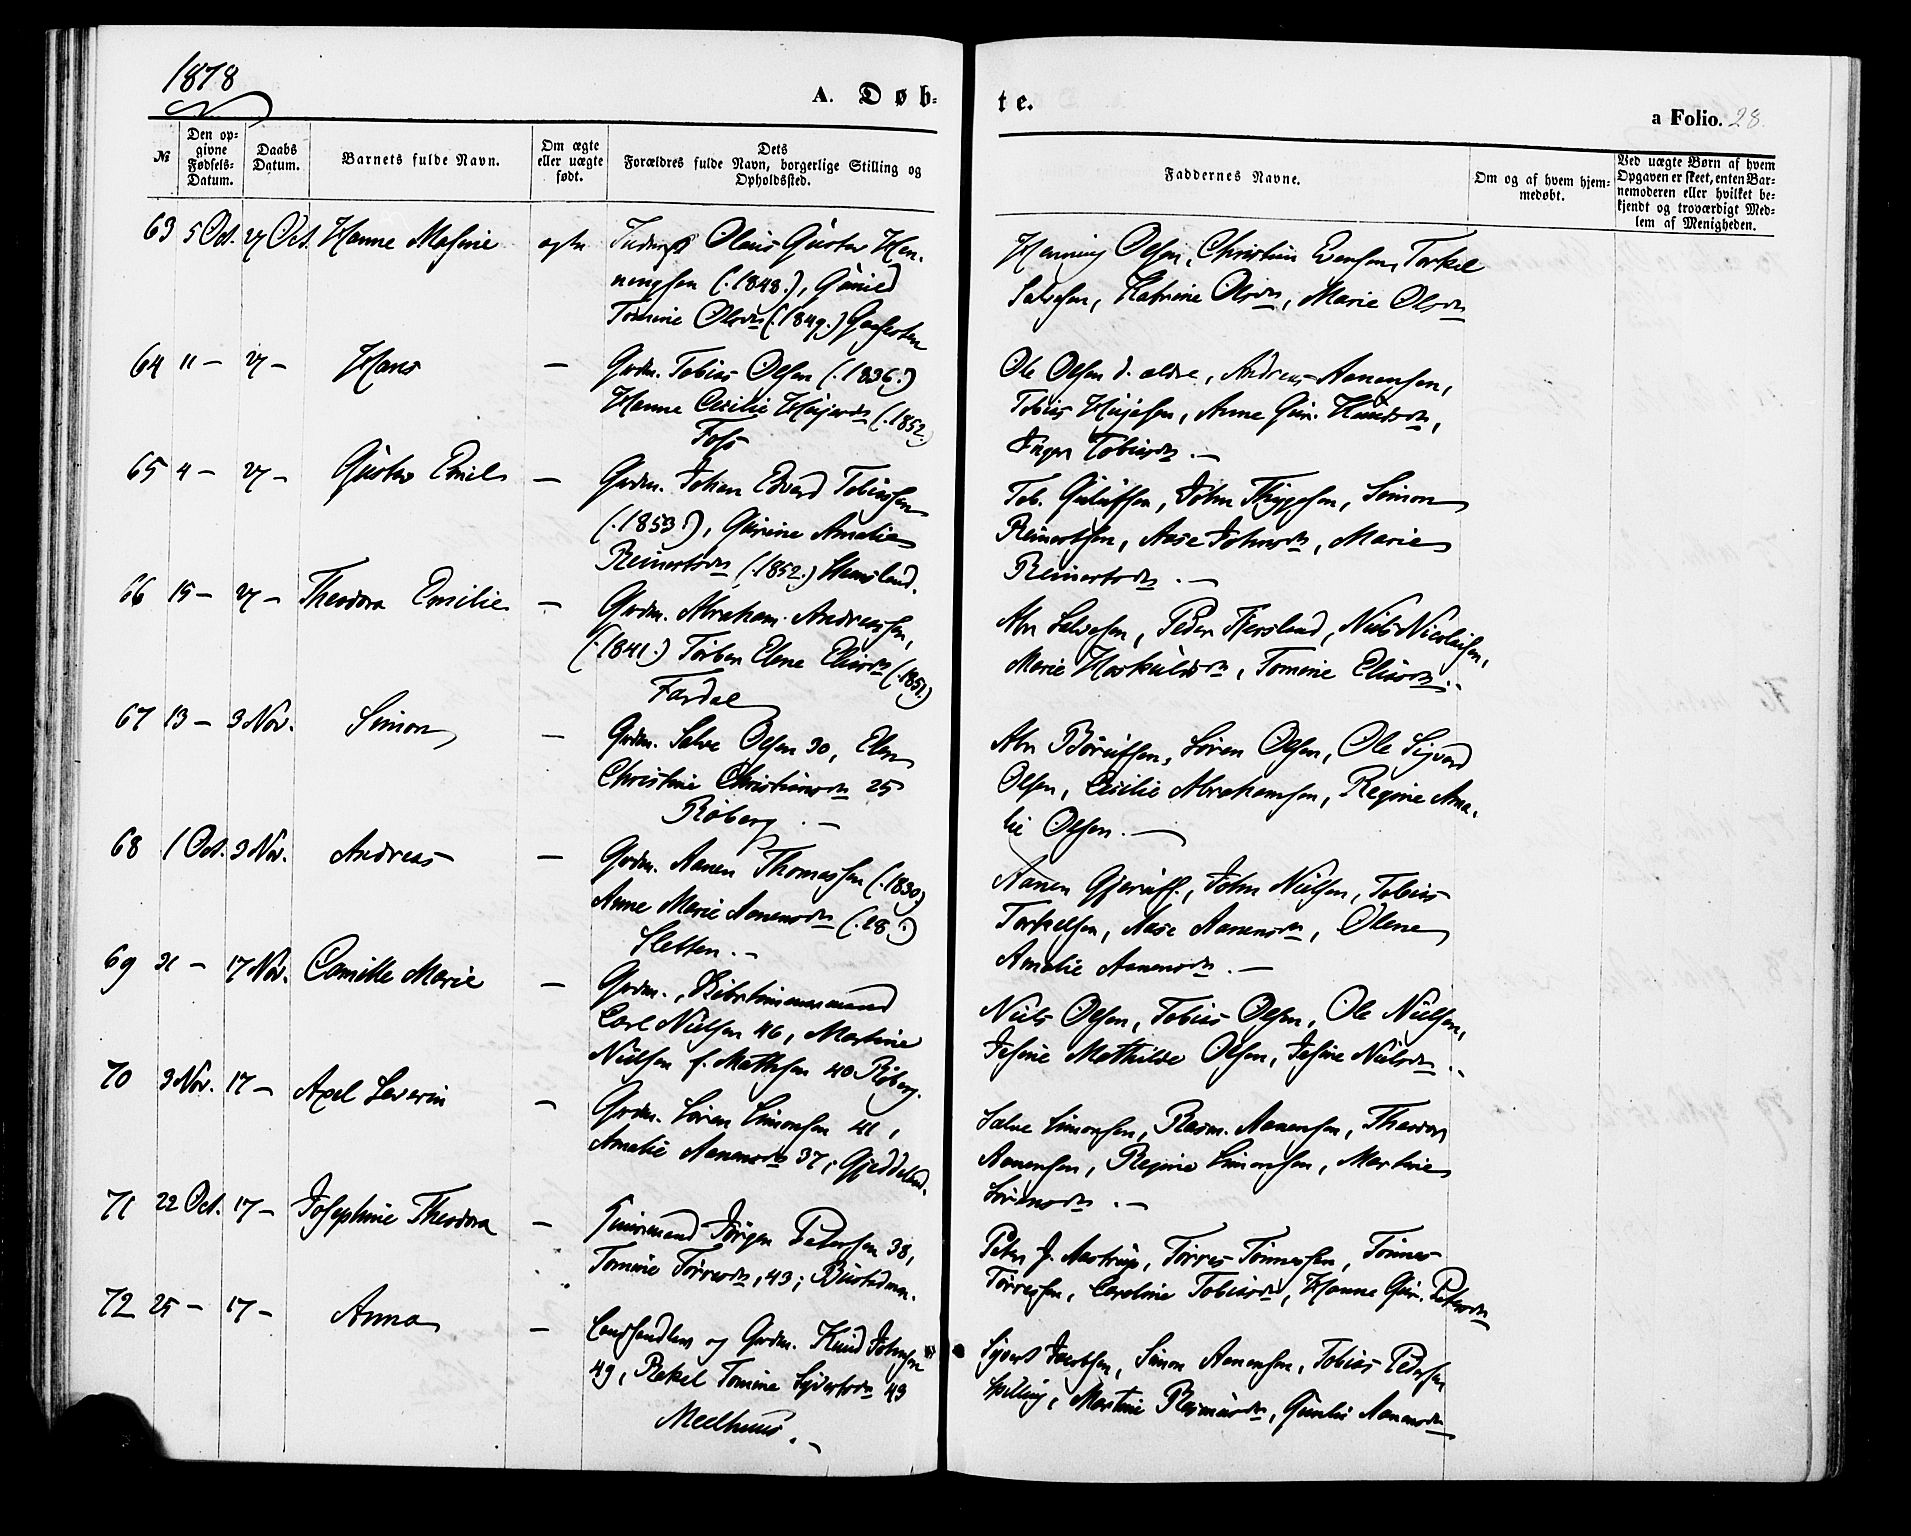 1878
A. Døb-
te.
a Folio. 28.
№
Den op-
givne
Fødsels-
Datum.
Daabs
Datum.
Barnets fulde Navn.
Om ægte
eller uægte
født.
Dets
Forældres fulde Navn, borgerlige Stilling og
Opholdssted.
Faddernes Navne.
Om og af hvem hjem-
medøbt.
Ved uægte Børn af hvem
Opgaven er skeet, enten Bar-
nemoderen eller hvilket be-
kjendt og troværdigt Med-
lem af Menigheden.
63 5 Oct. 27 Oct. Hanne Masine ægte Olaus Gustav Hen-
ningsen (.1848.), Gunild
Tomine Olsdr (.1849.)
Henning Olsen, Christian Evensen, Torkel
Salvesen, Katrine Olsdr, Marie Olsdr
64 11 – 27 – Hans – Grdm. Tobias Olsen (.1836.)
Hanne Cecilie (.1852.)
Foss
Ole Olsen d. ældre, Andreas Aanensen,
Tobias, Anne Gur. Knudsdr,
Inger Tobiasdr. –
65 4 – 27 – Gustav Emil – Grdm. Johan Edvard Tobiassen
(.1853.), Gurine Amalie
Reinertsdr (.1852.)
Tob. Gulufsen, John Thygesen, Simon
Reinertsen, Aase Johnsdr, Marie
Reinertsdr. –
66 15 – 27 – Theodora Emilie – Grdm. Abraham Andreassen,
(.1841.) Torbor Elene Eliasdr (.1851.)
Fardal
Abr Salvesen, Peder, Niels Nicolaisen,
Marie, Tomine Eliasdr. –
67 13 – 3 Nov. Simon – Grdm. Salve Olsen 30, Elen
Christine Christiansdr 25
Røberg. –
Abr Børufsen, Søren Olsen, Ole Sigvard
Olsen, Cecilie Abrahamsen, Regine Ama-
lie Olsen. –
68 1 Oct. 3 Nov. Andreas – Grdm. Aanen Thomassen (.1830)
Anne Marie Aanensdr (.18 .)
Sletten. –
Aanen, John Nielsen, Tobias
Torkelsen, Aase Aanensdr, Olene
Amalie Aanensdr. –
69 31 – 17 Nov. Camille Marie – Grdm.,
Carl Nielsen 46, Martine
Nielsen f. Mathisen 40 Røberg.
Niels Olsen, Tobias Olsen, Ole Nielsen,
Josine Mathilde Olsen, Josine Nielsdr. –
70 3 Nov. 17 – Axel Severin – Grdm. Søren Simonsen 41,
Amalie Aanensdr 37, Gjeddeland.
Salve Simonsen, Rasm. Aanensen, Theodor
Aanensen, Regine Simonsen, Martine
Sørensdr. –
71 22 Oct. 17 – Josephine Theodora – Jørgen Petersen 38,
Tomine Torresdr, 43;
Peter J. Aastrup, Torres Tønnessen, Tønnes
Torresen, Caroline Tobiasdr, Hanne Gur. Petersdr
72 25 – 17 – Anna – Landhandler og Grdm. Knud Johnsen
49, Rakel Tomine Syvertsdr 43
Meelhuus. –
Syvert Jacobsen, Simon Aanensen, Tobias Pedersen
Spilling, Martine Rasmusdr, Gunilde Aanensdr